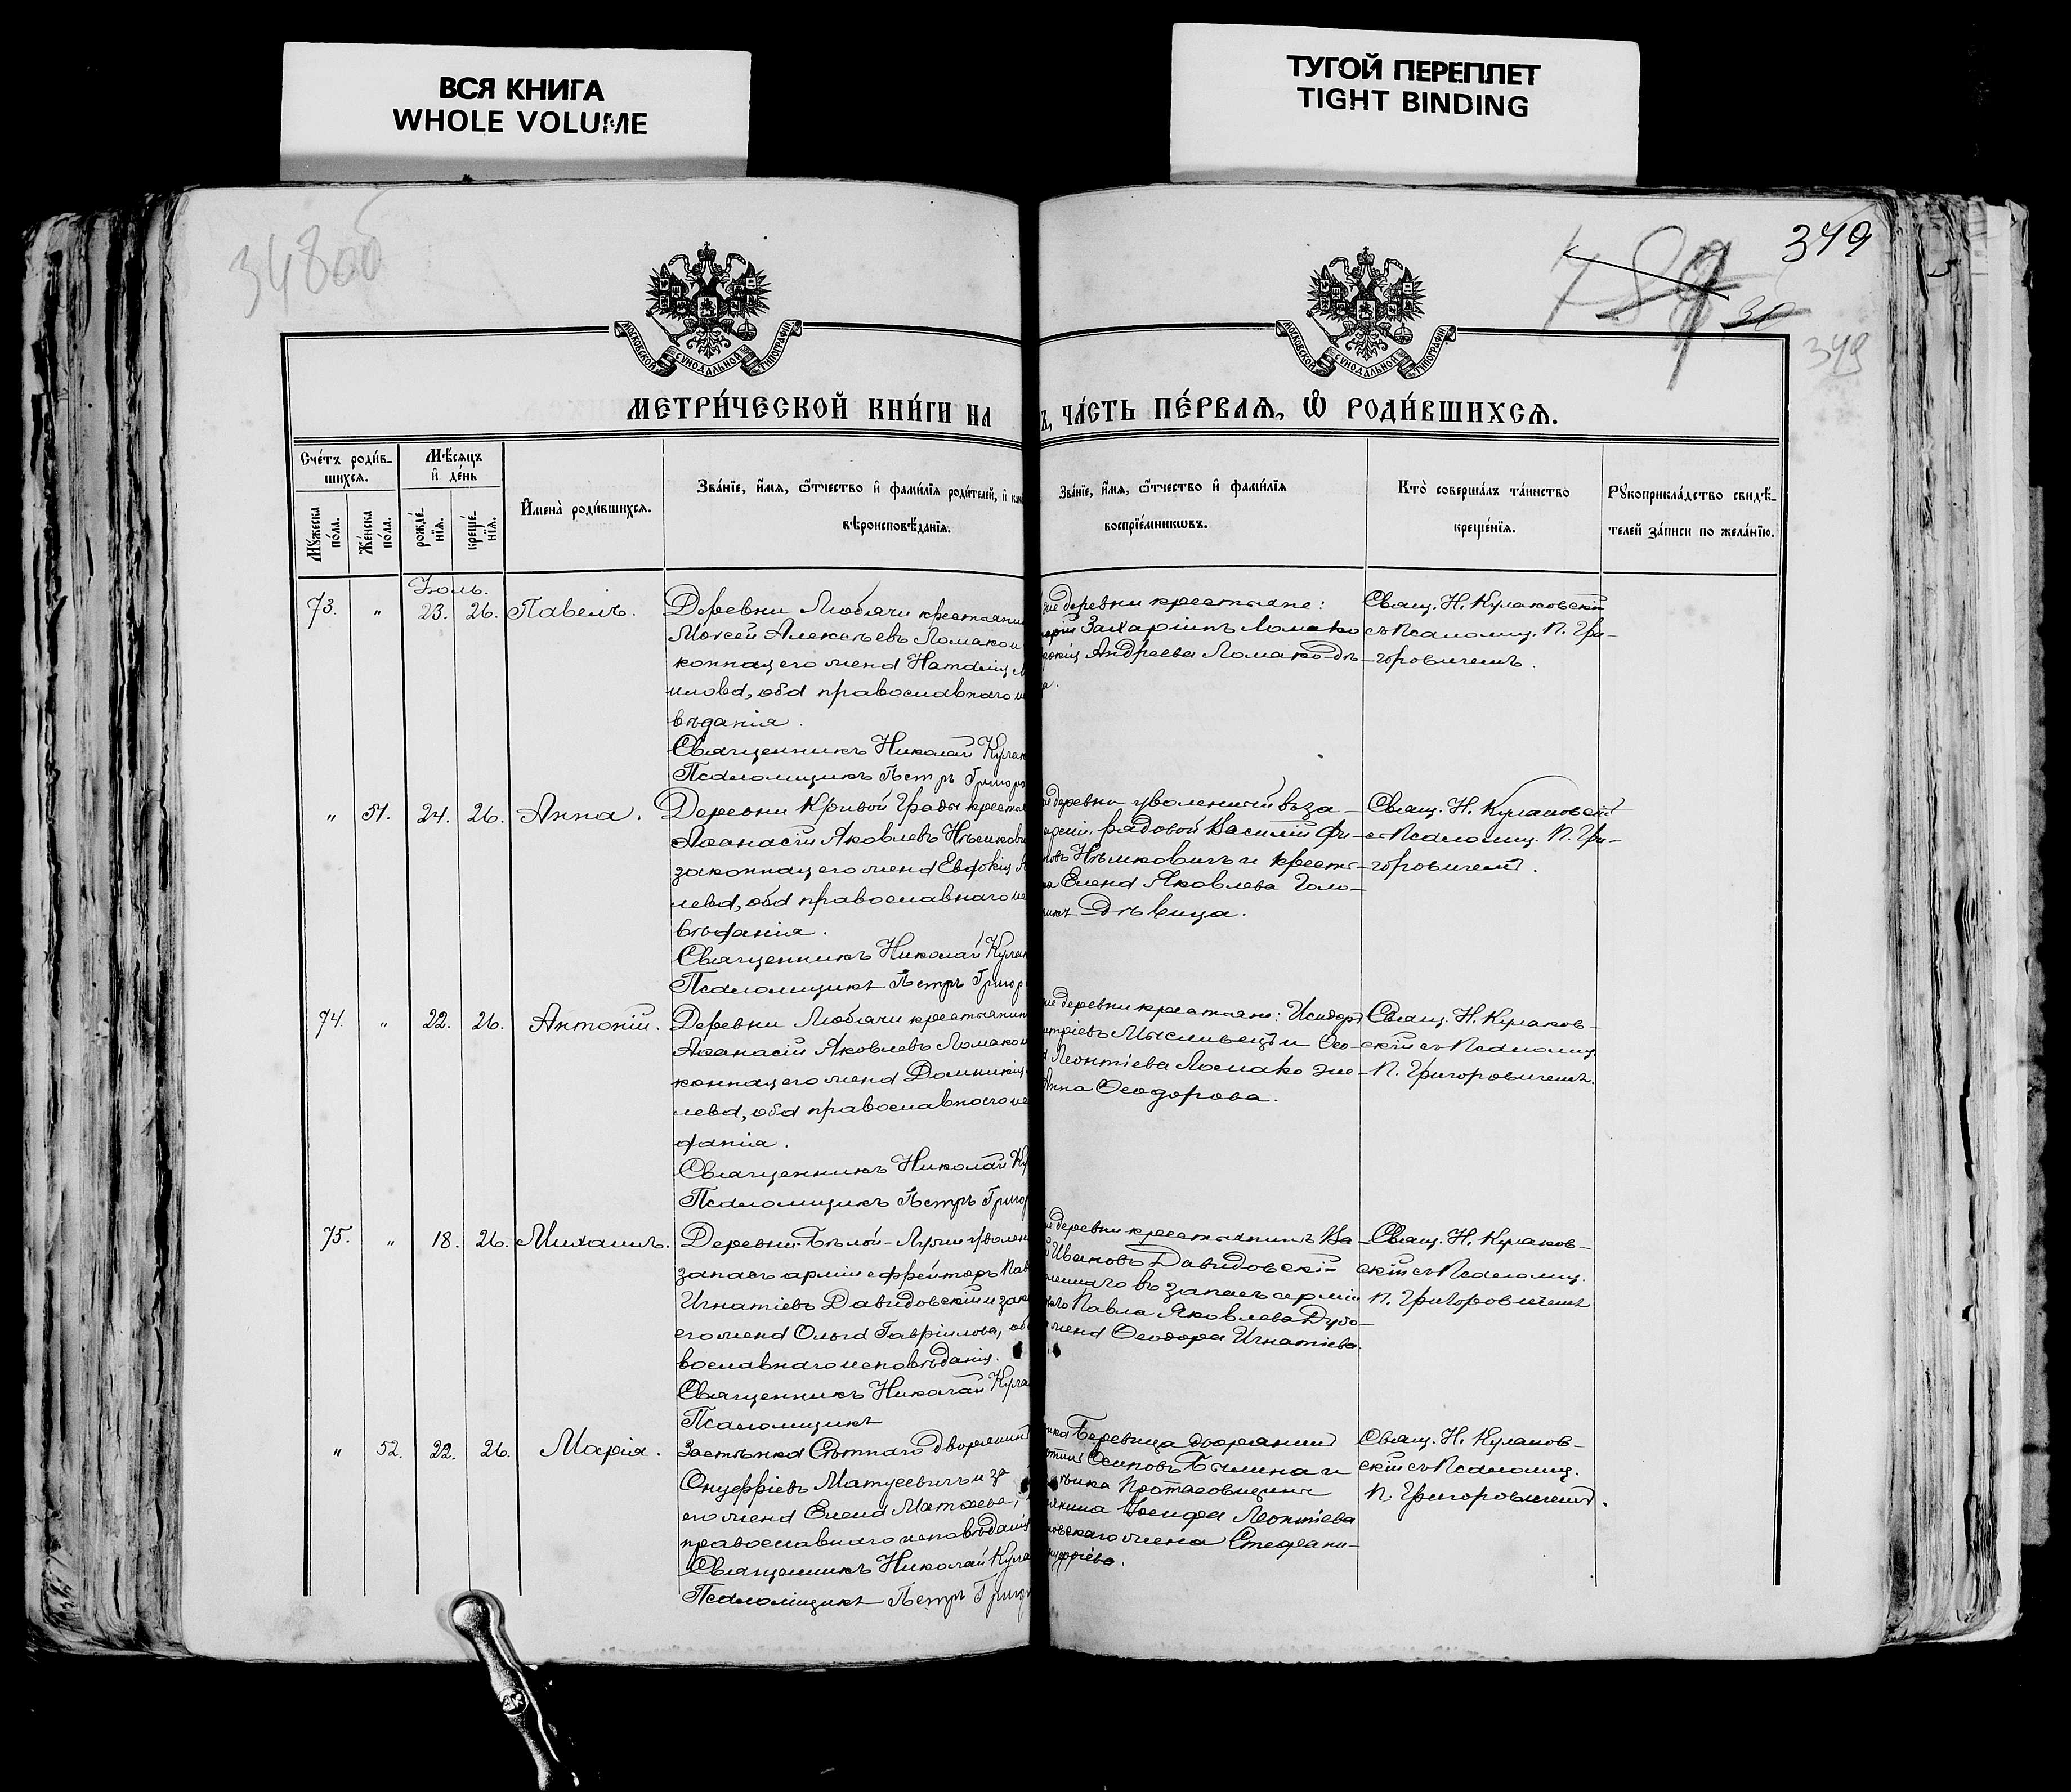 ВСЯ КНИГА
WHOLE VOLUME
ТУГОЙ ПЕРЕПЛЕТ
TIGHT BINDING
348об
349
789
30
349
МОСКОВСКОЙ СУНОДАЛЬНОЙ ТИПОГРАФІИ
МОСКОВСКОЙ СУНОДАЛЬНОЙ ТИПОГРАФІИ
МЕТРИ́ЧЕСКОЙ КНИ́ГИ НА
Ъ, ЧА́СТЬ ПЕ́РВАѦ, Ѡ҆ РОДИ́ВШИХСѦ.
Сче́тъ роди́в-
шихсѧ.
Мꙋ́жеска по́ла.
Же́нска по́ла.
Мѣ́сѧцъ
и҆ де́нь
рожде́-
нїѧ.
креще́-
нїѧ.
И҆мена̀ роди́вшихсѧ.
Зва́нїе, и҆́мѧ, ѻ҆́тчество и҆ фами́лїѧ роди́телей, и҆ како
вѣроисповѣ́данїѧ.
Зва́нїе, и҆́мѧ, ѻ҆́тчество и҆ фами́лїѧ
воспрїе́мникѡвъ.
Кто̀ соверша́лъ та́инство
креще́нїѧ.
Рꙋкоприкла́дство свидѣ́-
телей за́писи по жела́нїю.
Іюль.
73. " 23. 26. Павелъ.
Деревни Любачи крестьянин
Моисей Алексѣевъ Ломако и
конная его жена Наталія
илова, оба православнаго и
вѣданія.
Священникъ Николай Кулак
Псаломщикъ Петръ Григоро
же деревни крестьяне:
Захаріинъ Ломако
Андреева Ломако дѣ-
а.
Свящ. Н. Кулаковскій
съ Псаломщ. П. Гри-
горовичемъ.
" 51. 24. 26. Анна.
Деревни Кривой Грады крестья
Аѳанасій Яковлевъ Нѣмкови
законная его жена Евдокія
лева, оба православнаго ис
вѣданія.
Священникъ Николай Кулак
Псаломщикъ Петръ Григор
деревни уволенный въ за-
рядовой Василій Фи-
повъ Нѣмковичъ и крест-
ка Елена Яковлева Голо-
дѣвица.
Свящ. Н. Кулаковскій
съ Псаломщ. П. Гри-
горовичемъ.
74. " 22. 26. Антоній.
Деревни Любачи крестьянин
Аѳанасій Яковлевъ Ломако и
конная его жена Домникія
лева, оба православнаго ис
данія.
Священникъ Николай Ку
Псаломщикъ Петръ Григор
же деревни крестьяне: Исидоръ
итріевъ Мысливецъ и Ѳео-
Леонтіева Ломако же-
Анна Ѳеодорова.
Свящ. Н. Кулаков-
скій съ Псаломщ.
П. Григоровичемъ.
75. " 18. 26. Михаилъ.
Деревни Бѣлой-Лужи уволен
запасъ арміи ефрейторъ Пав
Игнатіевъ Давидовскій и зак
его жена Ольга Гавріилова, об
вославнаго исповѣданія.
Священникъ Николай Кула
Псаломщикъ
деревни крестьянинъ Ва-
Ивановъ Давидовскій
леннаго въ запасъ арміи
Павла Яковлева Дубо-
жена Ѳеодора Игнатіева
Свящ. Н. Кулаков-
скій съ Псаломщ.
П. Григоровичемъ
" 52. 22. 26. Марія.
Застѣнка Сѣтнаго дворянинъ
Онуфріевъ Матусевичъ и за
его жена Елена Матѳеева,
православнаго исповѣданія
Священникъ Николай Кула
Псаломщикъ Петръ Григор
Беревица дворянинъ
Осиповъ Былина и
Протасовщина
Іосифа Леонтіева
жена Стефани-
нуфріева.
Свящ. Н. Кулаков-
скій съ Псаломщ.
П. Григоровичемъ.